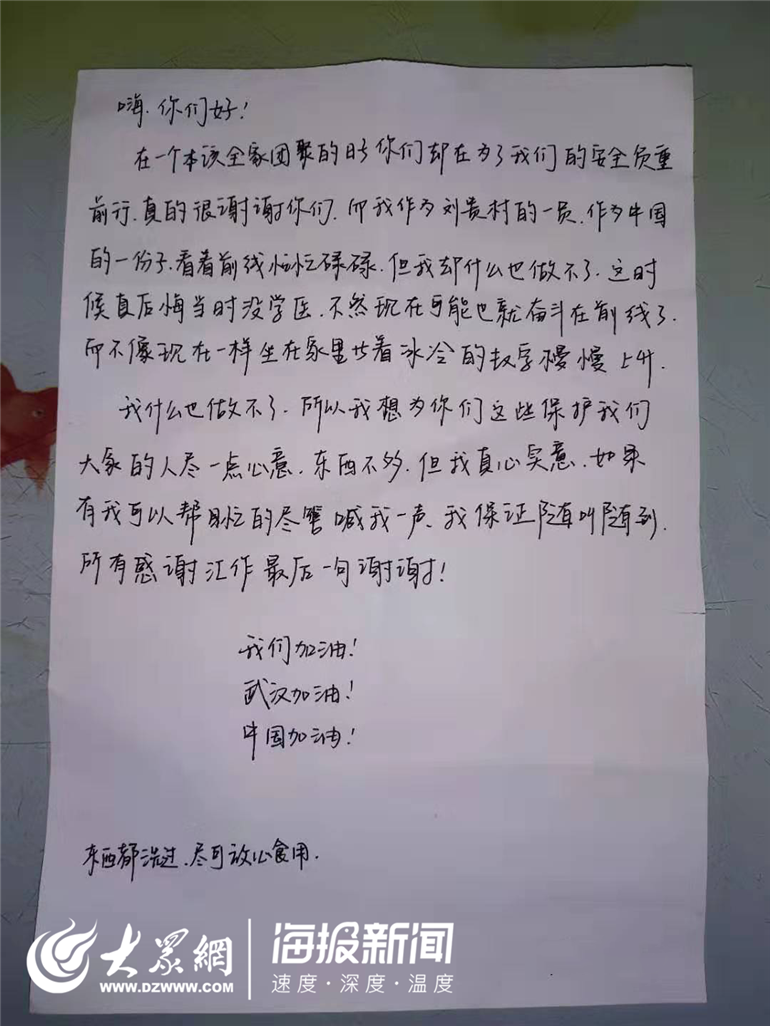 嗨.你们好!
在一个本该全家团聚的日子你们却在为了我们的安全负重
前行.真的很谢谢你们.而我作为刘贵村的一员.作为中国
的一份子.看着前线忙忙碌碌.但我却什么也做不了.这时
候真后悔当时没学医.不然现在可能也就奋斗在前线了.
而不像现在一样坐在家里看着冰冷的数字慢慢上升.
我什么也做不了.所以我想为你们这些保护我们
大家的人尽一点心意.东西不多.但我真心实意.如果
有我可以帮忙的尽管喊我一声.我保证随叫随到.
所有感谢汇作最后一句谢谢!
我们加油!
武汉加油!
中国加油!
东西都洗过.尽可放心食用.
大众網
WWW.DZWWW.COM
海报新闻
速度·深度·温度